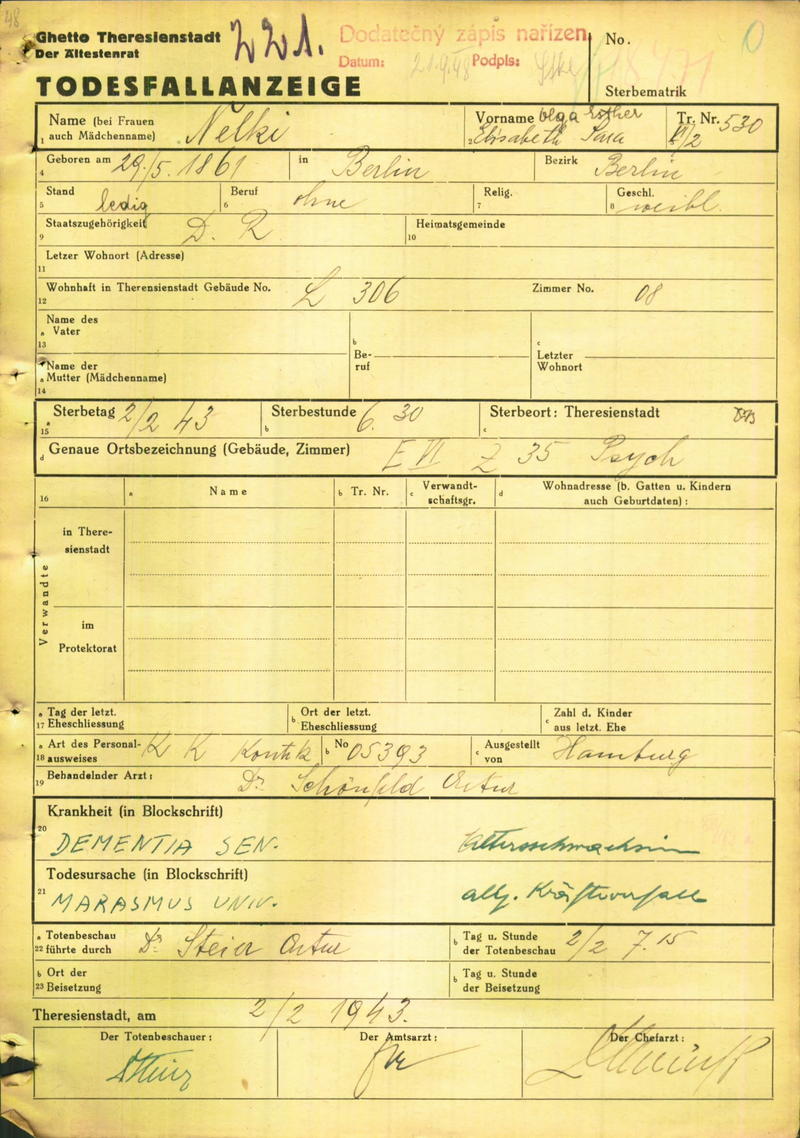 48
Ghetto Theresienstadt
Der Ältestenrat
221.
Dodatečný zápis nařízen
Datum: 21.9.48 Podpis:
No.
TODESFALLANZEIGE
Sterbematrik
Name (bei Frauen
1 auch Mädchenname) Nelki
Vorname Olga Esther
2 Elisabeth Sara
Tr. Nr. 530
VI/2
Geboren am 29./5. 1861 in Berlin Bezirk Berlin
4
Stand ledig Beruf ohne Relig. Geschl. weibl.
5 6 7 8
Staatszugehörigkeit D. R. Heimatsgemeinde
9 10
Letzer Wohnort (Adresse)
11
Wohnhaft in Theresienstadt Gebäude No. L 306 Zimmer No. 08
12
Name des
a Vater
13
b
Be-
ruf
c
Letzter
Wohnort
Name der
a Mutter (Mädchenname)
14
Sterbetag 2/2 43 Sterbestunde 6. 30 Sterbeort: Theresienstadt
a 15 b c
d Genaue Ortsbezeichnung (Gebäude, Zimmer) E VI Z 35 Psych
16 a Name b Tr. Nr. c Verwandt-
schaftsgr. d Wohnadresse (b. Gatten u. Kindern
auch Geburtdaten):
Verwandte
in There-
sienstadt
im
Protektorat
a Tag der letzt.
17 Eheschliessung
b Ort der letzt.
Eheschliessung
c Zahl d. Kinder
aus letzt. Ehe
a Art des Personal-
18 ausweises K K
b No 05393
c Ausgestellt
von Hamburg
19 Behandelnder Arzt: Dr. Schönfeld Artur
Krankheit (in Blockschrift)
20 DEMENTIA SEN. Altersschwachsinn
Todesursache (in Blockschrift)
21 MARASMUS UNIV. allg. Kräfteverfall
a Totenbeschau
22 führte durch Dr. Steier Artur
b Tag u. Stunde
der Totenbeschau 2/2 7.15
b Ort der
23 Beisetzung
b Tag u. Stunde
der Beisetzung
Theresienstadt, am 2/2 1943.
Der Totenbeschauer: Der Amtsarzt: Der Chefarzt: